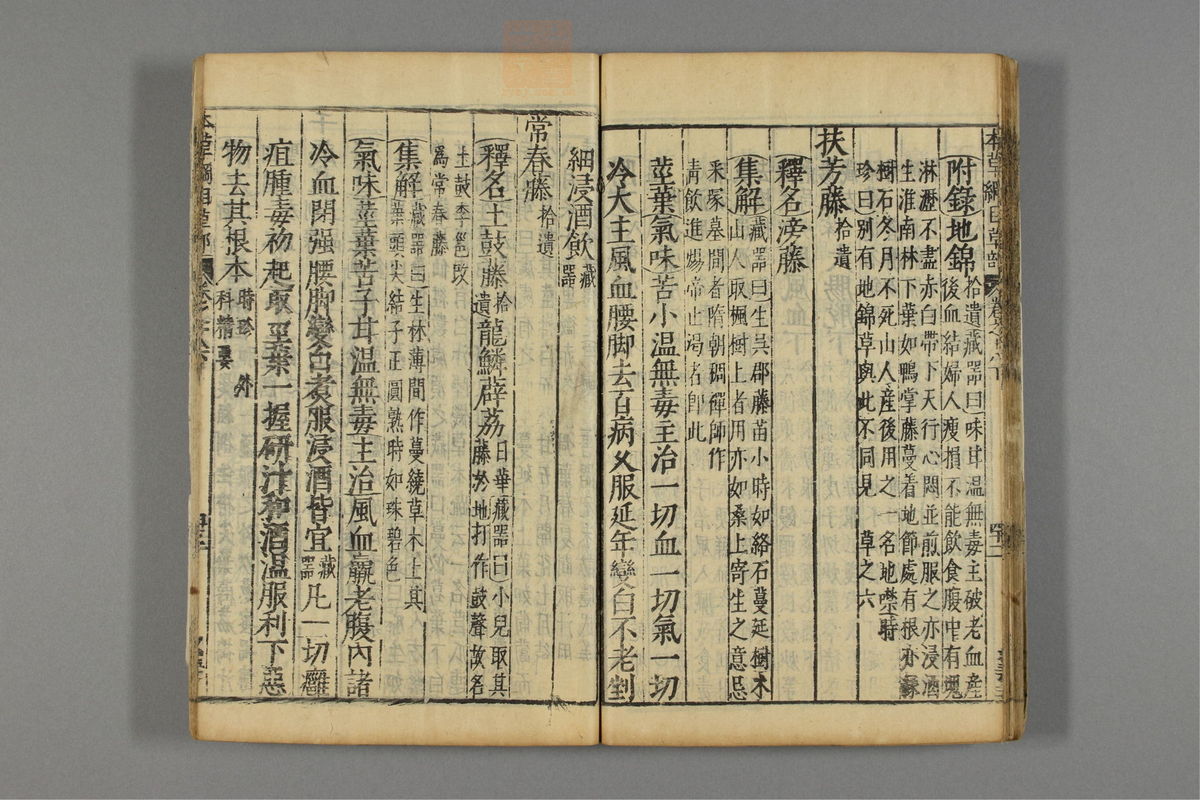 附錄地錦拾遺藏器曰味甘溫無毒主破老血產
後血結婦人瘦損不能飲食腹中有塊
淋瀝不盡赤白帶下天行心悶並煎服之亦浸酒
生淮南林下葉如鴨掌藤蔓着地節處有根亦緣
樹石冬月不死山人產後用之一名地噤時
珍曰別有地錦草與此不同見草之六
扶芳藤拾遺
釋名滂藤
集解藏器曰生吳郡藤苗小時如絡石蔓延樹木
山人取楓樹上者用亦如桑上寄生之意忌
采塚墓間者隋朝稠禪師作
青飲進煬帝止渴者即此
莖葉氣味苦小溫無毒主治一切血一切氣一切
冷大主風血腰脚去百病久服延年變白不老剉
細浸酒飲藏器
常春藤拾遺
釋名土鼓藤拾遺龍鱗薜荔日華藏器曰小兒取其
藤於地打作鼓聲故名
土鼓李邕改
為常春藤
集解藏器曰生林薄間作蔓繞草木上其
葉頭尖結子正圓熟時如珠碧色
氣味莖葉苦子甘溫無毒主治風血羸老腹內諸
冷血閉强腰脚變白煮服浸酒皆宜藏器凡一切癰
疽腫毒初起取莖葉一握研汁和酒溫服利下惡
物去其根本時珍外
科精要
本草綱目草部
本草綱目草部